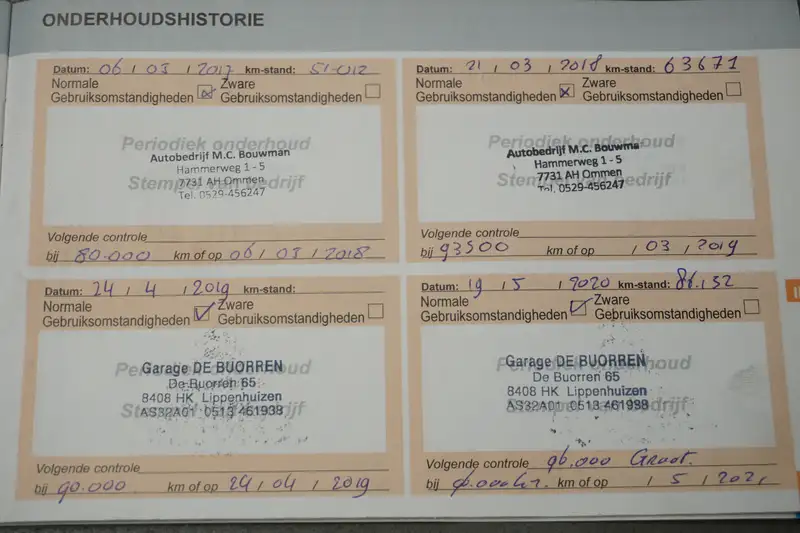 ONDERHOUDSHISTORIE
Datum: 06 / 03 / 2017 km-stand: 51.012
Normale Gebruiksomstandigheden ☒ Zware Gebruiksomstandigheden ☐
Periodiek onderhoud
Autobedrijf M.C. Bouwman
Hammerweg 1 - 5
7731 AH Ommen
Stempel van bedrijf
Tel. 0529-456247
Volgende controle
bij 80.000 km of op 06 / 03 / 2018
Datum: 21 / 03 / 2018 km-stand: 63671
Normale Gebruiksomstandigheden ☒ Zware Gebruiksomstandigheden ☐
Periodiek onderhoud
Autobedrijf M.C. Bouwma
Hammerweg 1 - 5
7731 AH Ommen
Stempel van bedrijf
Tel. 0529-456247
Volgende controle
bij 93500 km of op / 03 / 2019
Datum: 24 / 4 / 2019 km-stand:
Normale Gebruiksomstandigheden ☑ Zware Gebruiksomstandigheden ☐
Periodiek onderhoud
Garage DE BUORREN
De Buorren 65
8408 HK Lippenhuizen
AS32A01 0513 461938
Stempel van bedrijf
Volgende controle
bij 90.000 km of op 24 / 04 / 2019
Datum: 19 / 5 / 2020 km-stand: 86.132
Normale Gebruiksomstandigheden ☑ Zware Gebruiksomstandigheden ☐
Periodiek onderhoud
Garage DE BUORREN
De Buorren 65
8408 HK Lippenhuizen
AS32A01 0513 461938
Stempel van bedrijf
Volgende controle 96.000 Groot.
bij km of op / 5 / 2021